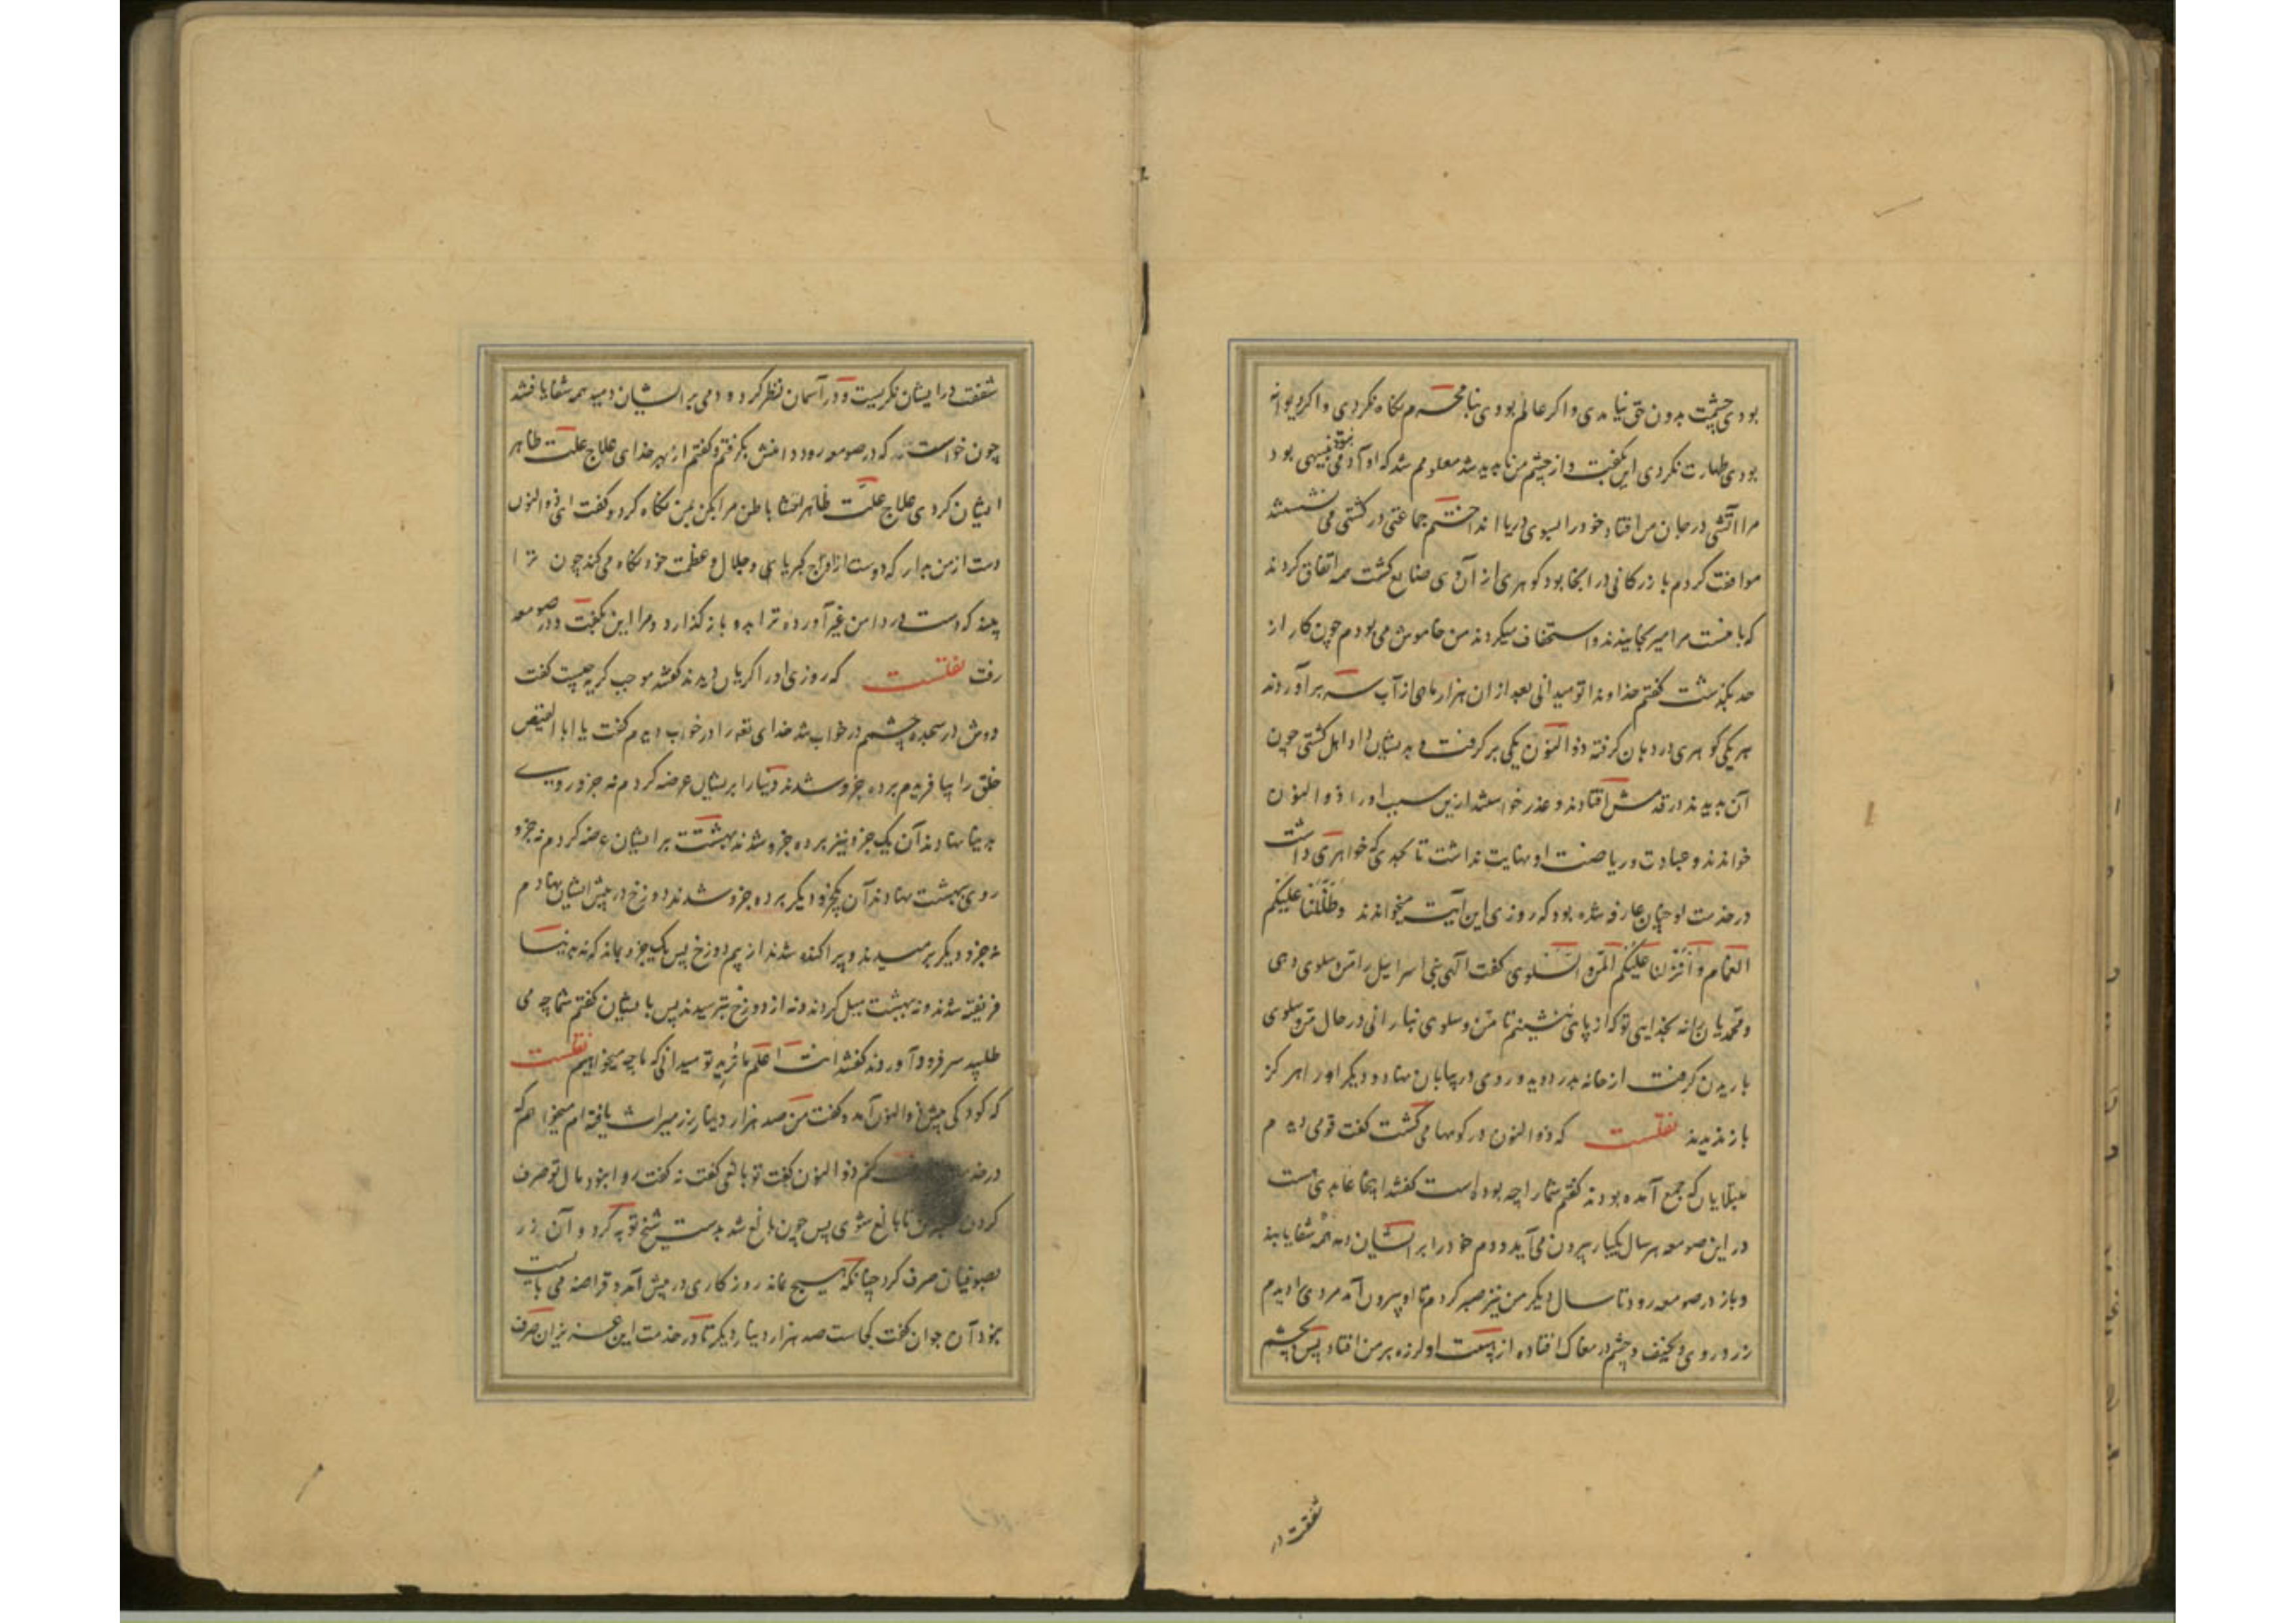 بودی چشمت بدون حق نیامدی واکر عالم بودی بنا محرم نکاه نکردی واکر دیوانه
بودی طهارت نکردی این بکفت و از چشم من ناپدید شد معلومم شد که او آدمی نبود تنبیهی بود
مرا آتشی در جان من افتاد خود را بسوی دریا انداختم جماعتی در کشتی می نشستند
موافقت کردم بازرکانی در انجا بود کوهری از آن وی ضایع کشت همه اتفاق کردند
که با تست مرا میرنجانیدند و استخفاف میکردند من خاموش می بودم چون کار از
حد بکذشت کفتم خداوندا تو میدانی بعد از ان هزار ماهی از آب سر برآوردند
هر یکی کوهری در دهان کرفته ذوالنون یکی برکرفت و بدیشان داد اهل کشتی چون
آن بدیدند در قدمش افتادند و عذر خواستند ازین سبب او را ذوالنون
خواندند و عبادت و ریاضت او نهایت نداشت تا بحدی که خواهری داشت
در خدمت او چنان عارفه شده بود که روزی این آیت میخواندند وظللنا علیکم
الغمام وانزلنا علیکم المن والسلوی کفت الهی بنی اسرائیل را من و سلوی دهی
و محمدیان را نه بخدایی تو که از پای ننشینم تا من و سلوی نبارانی در حال من و سلوی
باریدن کرفت از خانه بدر دوید و روی در بیابان نهاد و دیکر او را هرکز
باز ندیدند نقلست که ذوالنون در کوهها می کشت کفت قومی دیدم
مبتلایان که جمع آمده بودند کفتم شما را چه بوده است کفتند اینجا عابدی است
در این صومعه هر سال یکبار بیرون می آید و دم خود را بر ایشان دمد همه شفا یابند
و باز در صومعه رود تا سال دیکر من نیز صبر کردم تا او بیرون آمد مردی دیدم
زرد روی و نحیف و چشم در مغاک افتاده از هیبت او لرزه بر من افتاد پس بچشم
شفقت در
شفقت در ایشان نکریست و در آسمان نظر کرد و دمی بر ایشان دمید همه شفا یافتند
چون خواست که در صومعه رود دامنش بکرفتم و کفتم از بهر خدای علاج علت ظاهر
ایشان کردی علاج علت باطن مرا بکن بمن نکاه کرد و کفت ای ذوالنون
دست از من بدار که دوست از اوج کبریایی و جلال و عظمت خود نکاه می کند چون ترا
بیند که دست در دامن غیر آورده ترا بدو باز کذارد و مرا این بکفت و در صومعه
رفت نقلست که روزی او را کریان دیدند کفتند موجب کریه چیست کفت
دوش در سجده چشمم در خواب شد خدای تعه را در خواب دیدم کفت یا ابا الفیض
خلق را بیافریدم بر ده جزو شدند دنیا را بر ایشان عرضه کردم نه جزو روی
بدنیا نهادند آن یک جزو نیز بر ده جزو شدند بهشت بر ایشان عرضه کردم نه جزو
روی ببهشت نهادند آن یکجزو دیکر بر ده جزو شدند دوزخ در پیش ایشان نهادم
نه جزو دیکر برمیدند و پراکنده شدند از بیم دوزخ پس یک جزو بماند که نه بدنیا
فریفته شدند و نه ببهشت میل کردند و نه از دوزخ بترسیدند پس با ایشان کفتم شما چه می
طلبید سر فرود آوردند کفتند انت اعلم بما نرید تو میدانی که ما چه میخواهیم نقلست
که کودکی پیش ذوالنون آمد و کفت من صد هزار دینار زر میراث یافته ام میخواهم که
در خدمت صرف کنم ذوالنون کفت تو بالغی کفت نه کفت روا نبود مال تو صرف
کردن صبر کن تا بالغ شوی پس چون بالغ شد بدست شیخ توبه کرد و آن زر
بصوفیان صرف کرد چنانکه هیچ نماند روزکاری در پیش آمد و قراضه می بایست
نبود آن جوان کفت کجاست صد هزار دینار دیکر تا در خدمت این عزیزان صرف